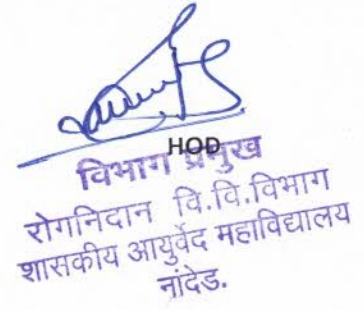 HOD
विभाग प्रमुख
रोगनिदान वि.वि.विभाग
शासकीय आयुर्वेद महाविद्यालय
नांदेड.